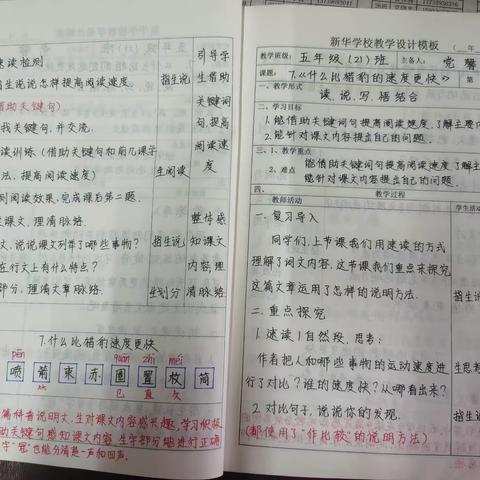 速读检测
指生说说怎样提高阅读速度
指生说
引导学
生借助
关键词
句,提高
阅读速
度
借助关键句)
找关键句,并交流。
读训练(借助关键句和前几课学
法,提高阅读速度)
生阅读
测阅读效果,完成课后第二题。
课文,理清脉络.
文,说说课文列举了哪些事物?
指生说
在行文上有什么特点?
部分,理清文章脉络.
生划分
整体感
知课文
内容,理
清脉络.
7.什么比猎豹速度更快
pēn
quān
zhì
méi
喷 葡 束 赤 圈 置 枚 筒
已 直 攵
篇特看说明文,生对课文内容感兴趣,学习积极
助关键句感知课文内容,生字部分能进行正确
也能分清楚一声和四声。
新华学校教学设计模板
教学班级: 五年级(21)班 主备人: 党馨
课题: 7.《什么比猎豹的速度更快》 第
一、教学形式
读、说、写、悟结合
二、学习目标
1.能借助关键词句提高阅读速度,了解主要内
2.能针对课文内容提出自己的问题.
三、1、教学重点
2、难点
能借助关键词句提高阅读速度了解主
能针对课文内容提自己的问题.
四、 教学过程
教师活动
学生活动
一.复习导入
同学们,上节课我们用速读的方式
理解了词文内容,这节课我们重点来探究
这篇文章运用了怎样的说明方法.
指生说
二.重点探究
1.速读1自然段,思考:
作者把人和哪些事物的运动速度进
生思考
行了对比?谁的速度快?从哪看出来?
指生
2.对比句子,说说你的发现.
指生说
(都使用了"作比较"的说明方法)